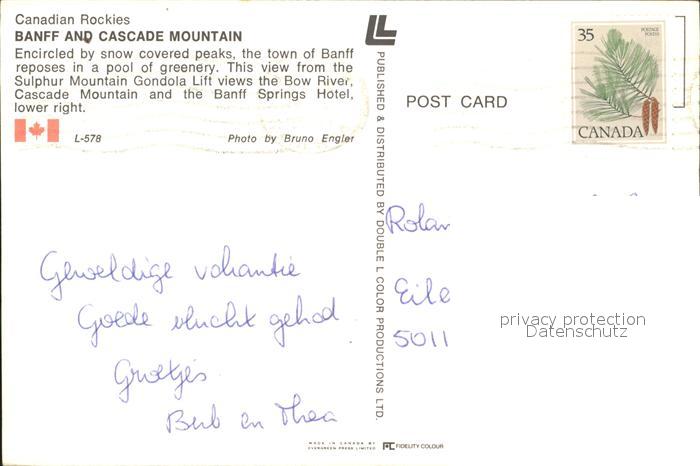 Canadian Rockies
BANFF AND CASCADE MOUNTAIN
Encircled by snow covered peaks, the town of Banff
reposes in a pool of greenery. This view from the
Sulphur Mountain Gondola Lift views the Bow River,
Cascade Mountain and the Banff Springs Hotel,
lower right.
L-578 Photo by Bruno Engler
Geweldige vakantie
Goede vlucht gehad
Groetjes
Bert en Thea
LL
PUBLISHED & DISTRIBUTED BY DOUBLE L COLOR PRODUCTIONS LTD.
MADE IN CANADA BY
EVERGREEN PRESS LIMITED
FIDELITY COLOUR
POST CARD
35
POSTAGE
POSTES
CANADA
Rolan
Eile
5011
privacy protection
Datenschutz